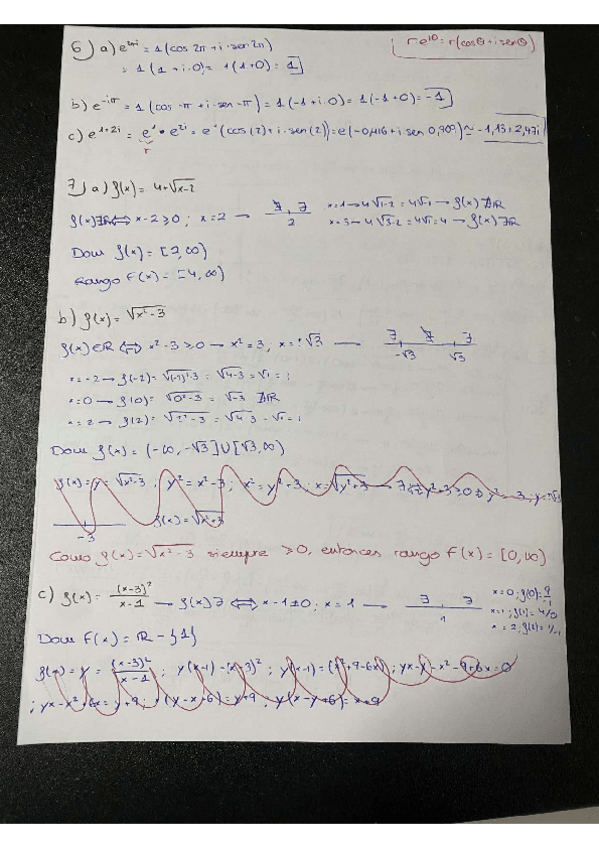 6) a) e^{2πi} = 1(cos 2π + i·sen 2π)
re^{iθ} = r(cosθ + i senθ)
= 1(1 + i·0) = 1(1+0) = 1
b) e^{-iπ} = 1(cos -π + i·sen -π) = 1(-1 + i·0) = 1(-1+0) = -1
c) e^{1+2i} = e^1 · e^{2i} = e^1(cos(2) + i·sen(2)) = e(-0,416 + i sen 0,909) ≈ -1,13 + 2,47i
r
7) a) f(x) = 4+√x-2
f(x)∃ℝ ⟺ x-2 ≥ 0 ; x = 2 → ∄ ∃ 2
x=1 → 4√1-2 = 4√-1 → f(x) ∄ℝ
x=3 → 4√3-2 = 4√1 = 4 → f(x) ∃ℝ
Dom f(x) = [2, ∞)
Rango F(x) = [4, ∞)
b) f(x) = √x²-3
f(x)∈ℝ ⟺ x²-3 ≥ 0 → x² = 3 ; x = ±√3 — ∃ ∄ ∃ -√3 √3
x = -2 → f(-2) = √(-2)²-3 = √4-3 = √1 = 1
x = 0 → f(0) = √0²-3 = √-3 ∄ℝ
x = 2 → f(2) = √2²-3 = √4-3 = √1 = 1
Dom f(x) = (-∞, -√3] U [√3, ∞)
f(x) = y = √x²-3 ; y² = x²-3 ; x² = y²+3 ; x = √y²+3
-3 f(x) = √x²+3
Como f(x) = √x²-3 siempre ≥ 0, entonces rango F(x) = [0, ∞)
c) f(x) = (x-3)²/x-1 → f(x)∃ ⟺ x-1≠0 ; x = 1 — ∃ ∃ 1
x=0 ; f(0) = 9/-1
x=1 ; f(1) = 4/0
Dom F(x) = ℝ - {1}
f(x) = y = (x-3)²/x-1 ; y(x-1) = (x-3)² ; y(x-1) = (x²+9-6x) ; yx-y-x²-9+6x = 0
; yx-x²+6x = y+9 ;